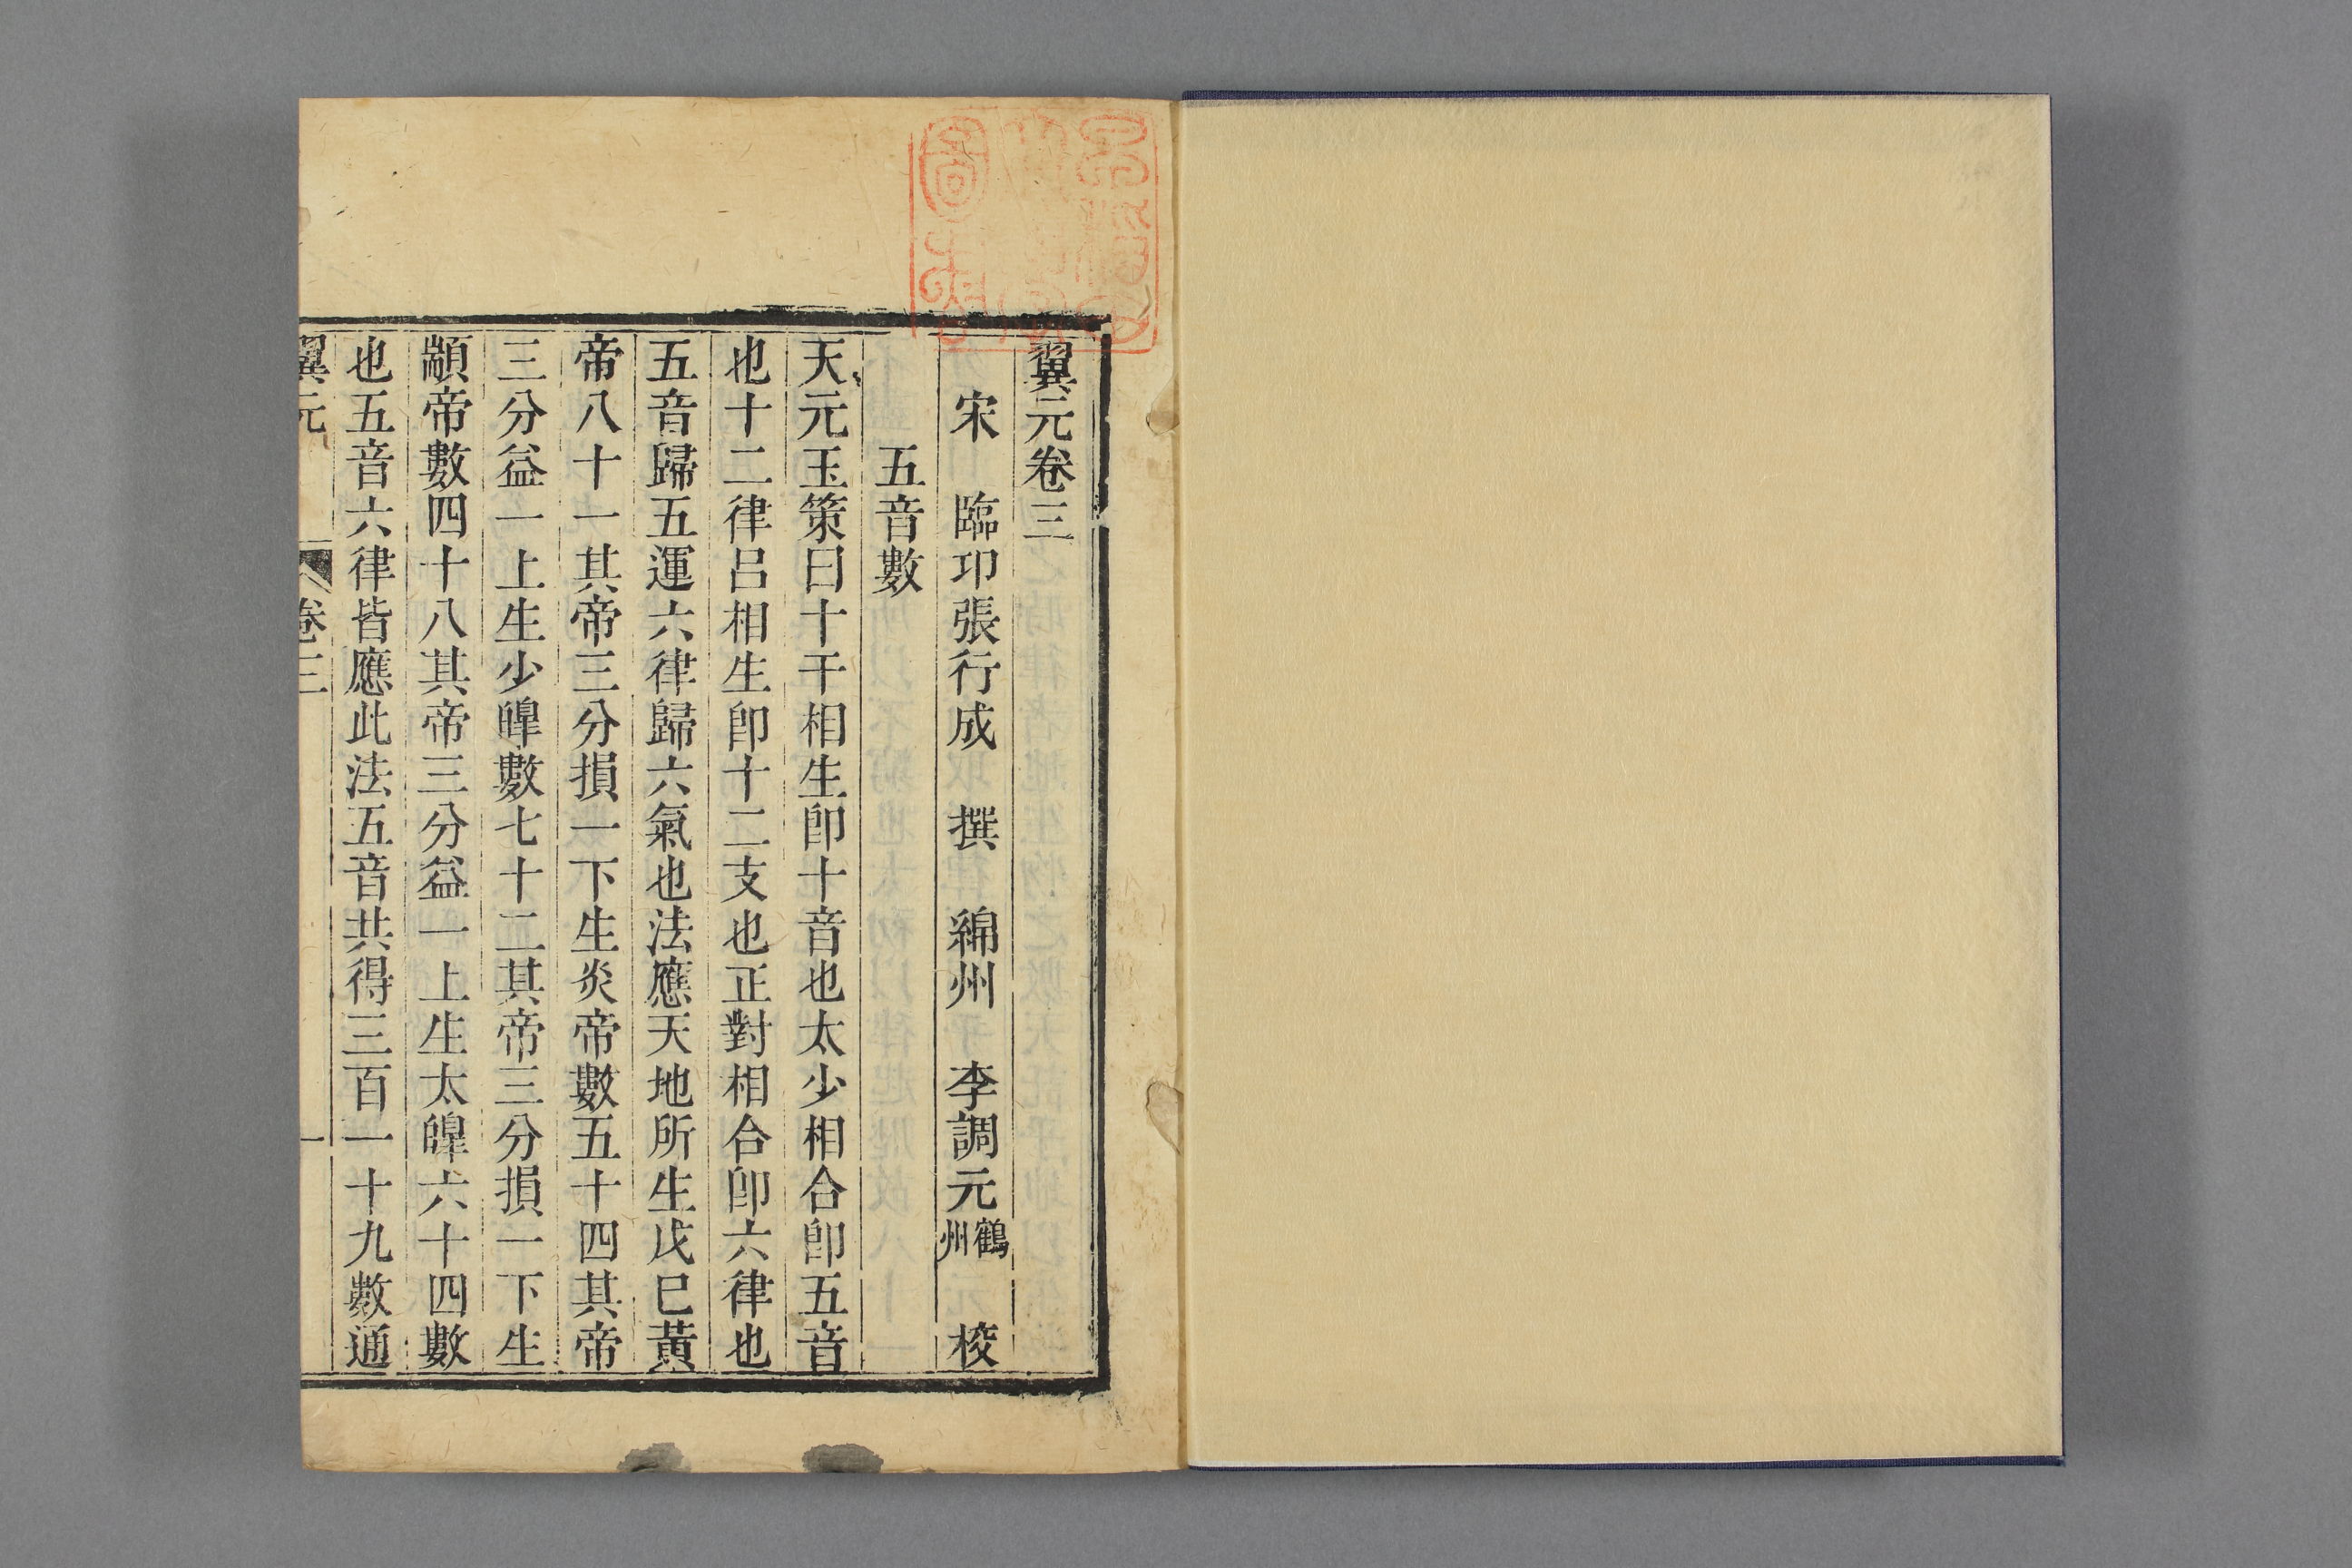 翼元卷三
宋 臨卭張行成 撰 綿州 李調元鶴州 校
五音數
天元玉策曰十干相生卽十音也太少相合卽五音
也十二律呂相生卽十二支也正對相合卽六律也
五音歸五運六律歸六氣也法應天地所生戊巳黃
帝八十一其帝三分損一下生炎帝數五十四其帝
三分益一上生少皥數七十二其帝三分損一下生
顓帝數四十八其帝三分益一上生太皥六十四數
也五音六律皆應此法五音共得三百一十九數通
翼元 卷三 一